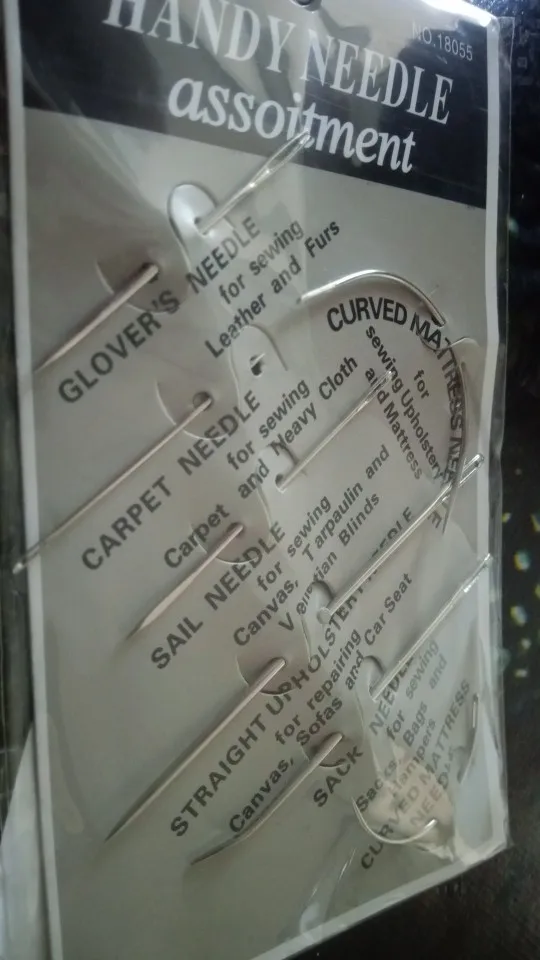 HANDY NEEDLE
NO.18055
assoitment
GLOVER'S NEEDLE
for sewing
Leather and Furs
CURVED MATTRESS NEEDLE
for
sewing Upholstery
and Mattress
CARPET NEEDLE
for sewing
Carpet and Neavy Cloth
SAIL NEEDLE
for sewing
Canvas, Tarpaulin and
Venetian Blinds
STRAIGHT UPHOLSTERY NEEDLE
for repairing
Canvas, Sofas and Car Seat
SACK NEEDLE
for sewing
Sacks, Bags and
Hampers
CURVED MATTRESS
NEEDLE